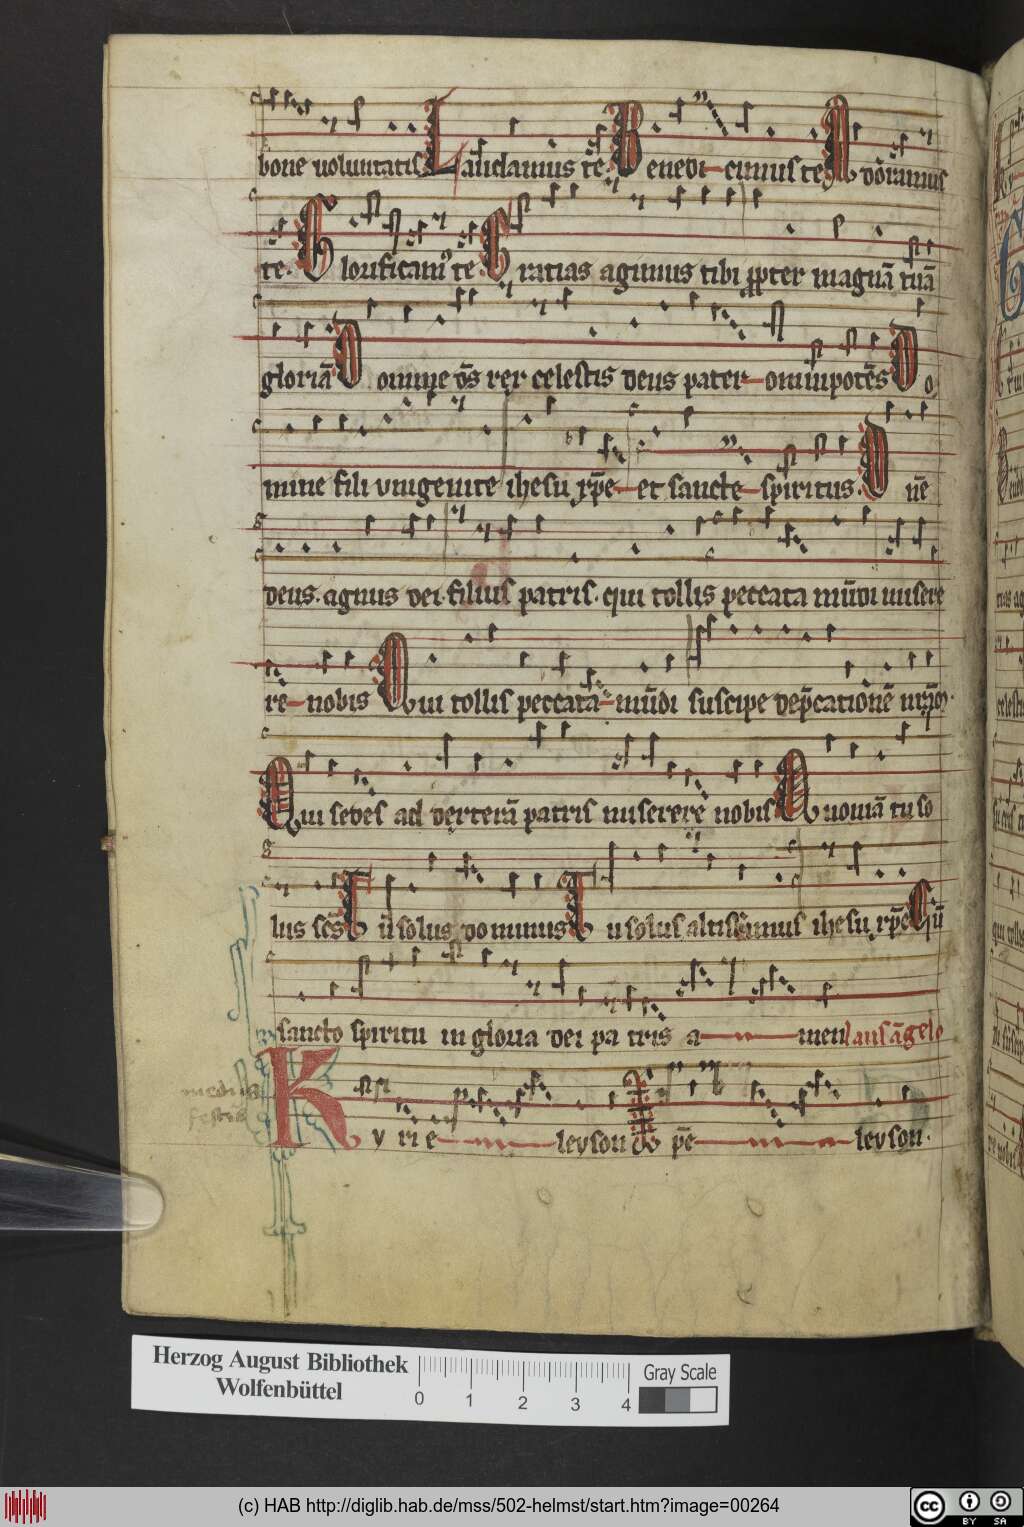 bone uoluntatis Laudamus te. Benedi–cimus te Adoramus
te. Glorificamꝰ te. Gratias agimus tibi ꝓpter magnā tuā
gloriā Domine dꝰs rex celestis deus pater–omnipotēs Do
mine fili vnigenite ihesu xp̄e–et sancte–spiritus. Dn̄e
deus. agnus dei. filius patris. qui tollis peccata mūdi misere
re–nobis Qui tollis peccata–mūdi suscipe dep̄cationē nr̄am.
Qui sedes ad dexterā patris miserere nobis Quoniā tu so
lus sc̄s Tu solus dominus Tu solus altissimus ihesu xp̄e Cū
sancto spiritu in gloria dei pa tris a–men laus āgelo
mediis festis
Kyrie–leyson xp̄e–leyson.
Herzog August Bibliothek
Wolfenbüttel
0 1 2 3 4
Gray Scale
(c) HAB http://diglib.hab.de/mss/502-helmst/start.htm?image=00264
cc BY SA